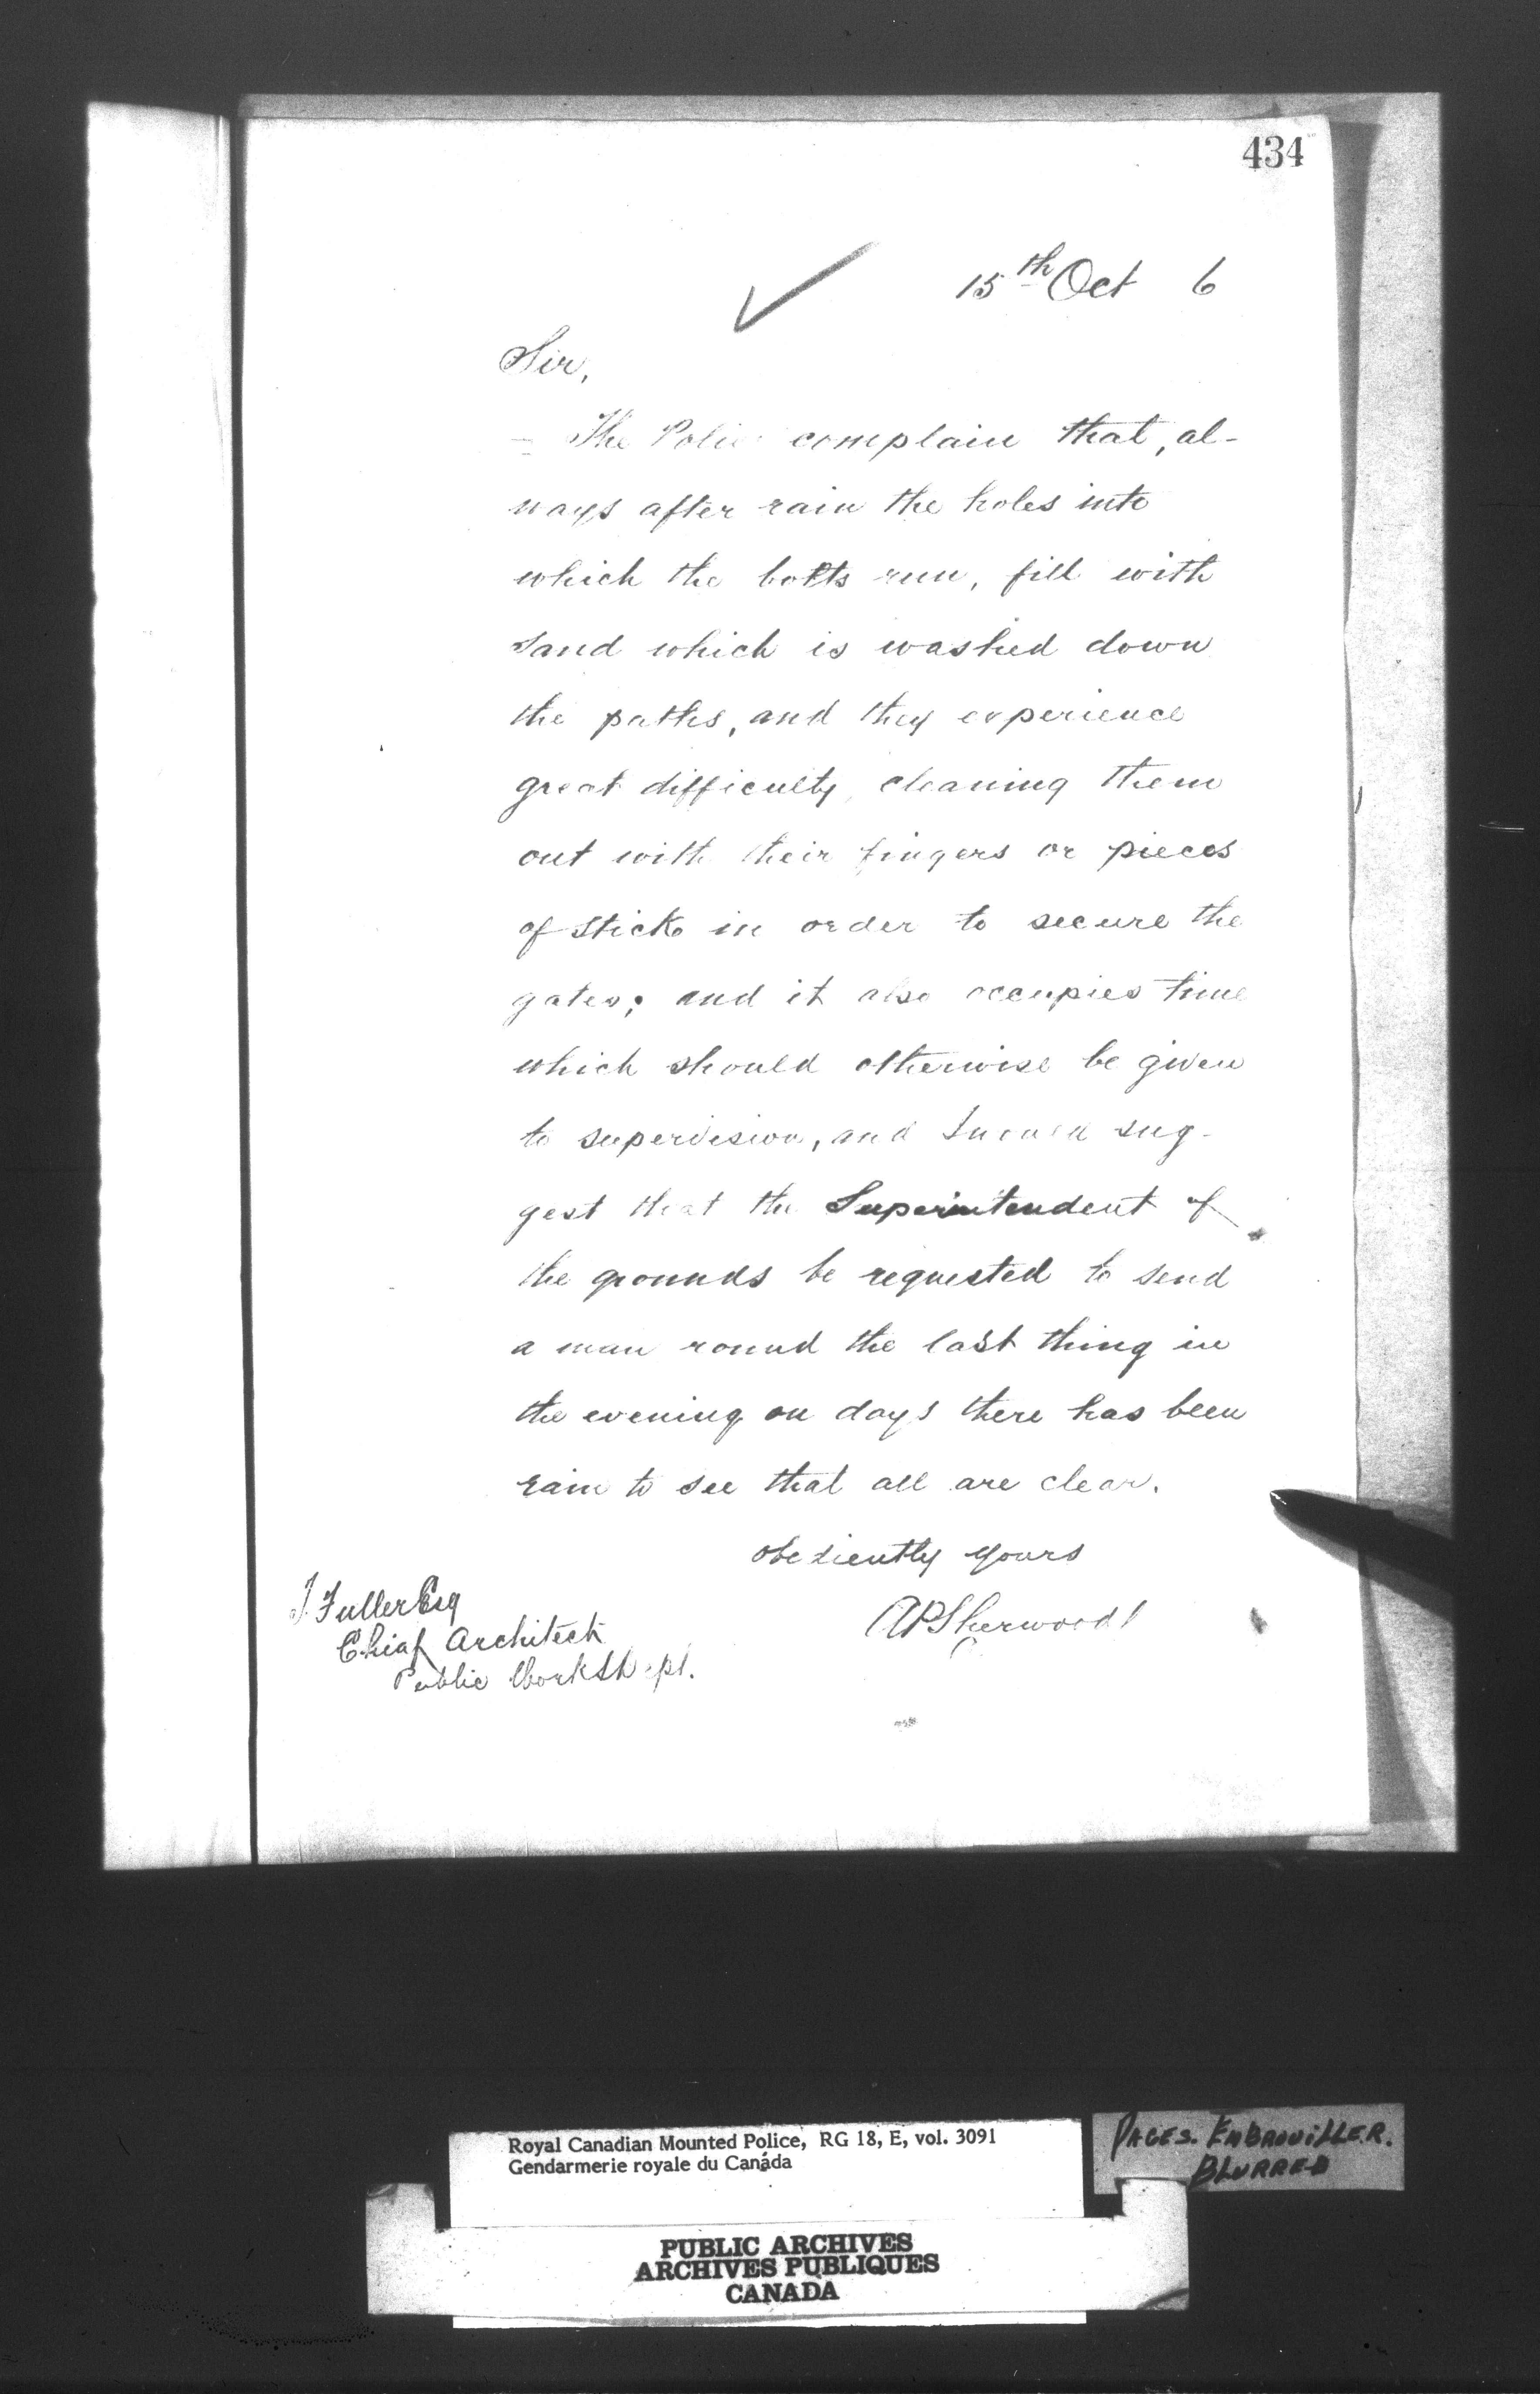 434
15th Oct 6
Sir,
The Police complain that, al-
ways after rain the holes into
which the bolts run, fill with
sand which is washed down
the paths, and they experience
great difficulty, cleaning them
out with their fingers or pieces
of stick in order to secure the
gates; and it also occupies time
which should otherwise be given
to supervision, and I would sug-
gest that the Superintendent of
the grounds be requested to send
a man round the last thing in
the evening on days there has been
rain to see that all are clear.
obediently yours
APSherwood
T. Fuller Esq
Chief Architect
Public Works Dept.
Royal Canadian Mounted Police, RG 18, E, vol. 3091
Gendarmerie royale du Canada
PAGES. EMBROUILLER.
BLURRED
PUBLIC ARCHIVES
ARCHIVES PUBLIQUES
CANADA